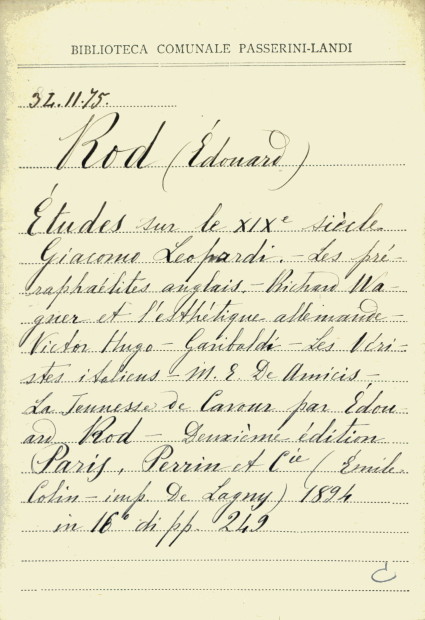 BIBLIOTECA COMUNALE PASSERINI-LANDI
3L.11.75.
Rod (Édouard)
Études sur le XIXe siècle.
Giacomo Leopardi. - Les pré-
raphaélites anglais. - Richard Wa-
gner et l'esthétique allemande -
Victor Hugo - Garibaldi - Les Véri-
stes italiens - M. E. De Amicis -
La Jeunesse de Cavour par Édou-
ard Rod - Deuxième édition
(Paris, Perrin et Cie (Émile
Colin - imp. De Lagny) 1894
in 16° di pp. 249
C